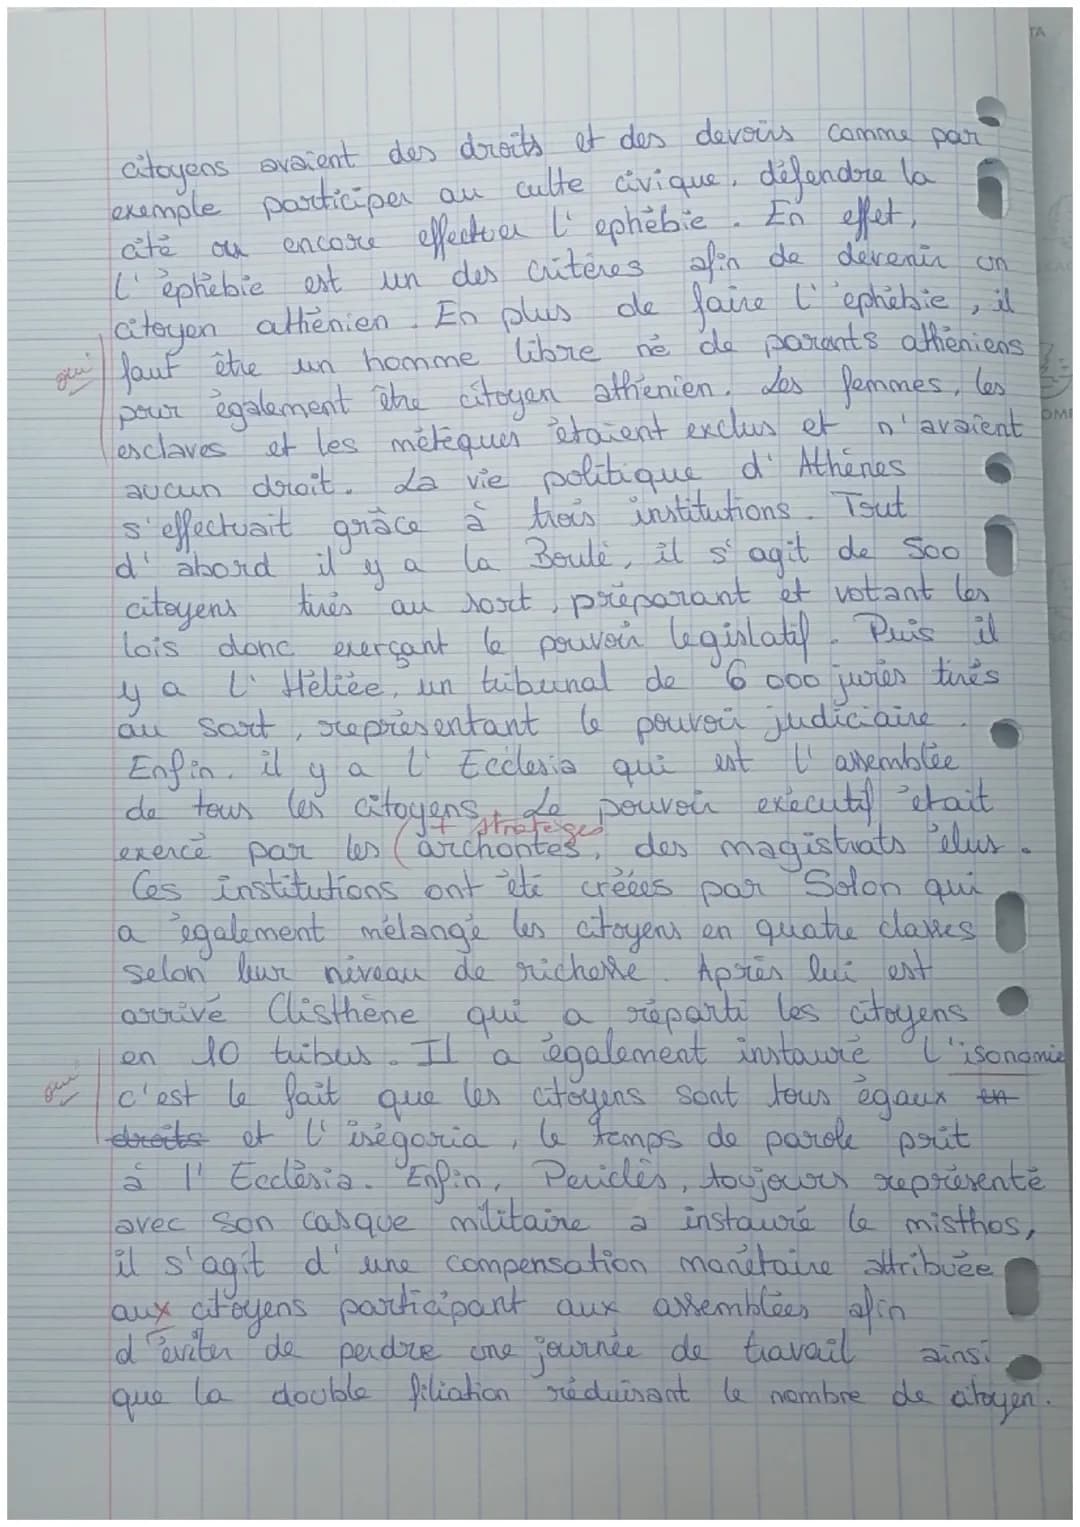 citoyens avaient des droits et des devoirs comme par
exemple participer au culte civique, défendre la
cité ou encore effectuer l'ephébie. En effet,
l'éphébie est un des critères afin de devenir un
citoyen athénien. En plus de faire l'ephébie, il
oui
faut être un homme libre né de parents athéniens
pour également être citoyen athénien. Les femmes, les
esclaves et les métèques étaient exclus et n'avaient
aucun droit. La vie politique d'Athènes
s'effectuait grâce à trois institutions. Tout
d'abord il y a la Boulé, il s'agit de 500
citoyens tirés au sort, préparant et votant les
lois donc exerçant le pouvoir législatif. Puis il
y a l'Héliée, un tribunal de 6 000 jurés tirés
au sort, représentant le pouvoir judiciaire.
Enfin, il y a l'Ecclesia qui est l'assemblée
de tous les citoyens. Le pouvoir exécutif était
+ stratèges
exercé par les (archontes, des magistrats élus.
Ces institutions ont été créées par Solon qui
a également mélangé les citoyens en quatre classes
selon leur niveau de richesse. Après lui est
arrivé Clisthène qui a réparti les citoyens
en 10 tribus. Il a également instauré l'isonomie
oui
c'est le fait que les citoyens sont tous égaux en
droits et l'iségoria, le temps de parole
à l'Ecclésia. Enfin, Périclès, toujours représenté
avec son casque militaire a instauré le misthos,
il s'agit d'une compensation monétaire attribuée
aux citoyens participant aux assemblées afin
d'éviter de perdre une journée de travail ainsi
que la double filiation réduisant le nombre de citoyen.